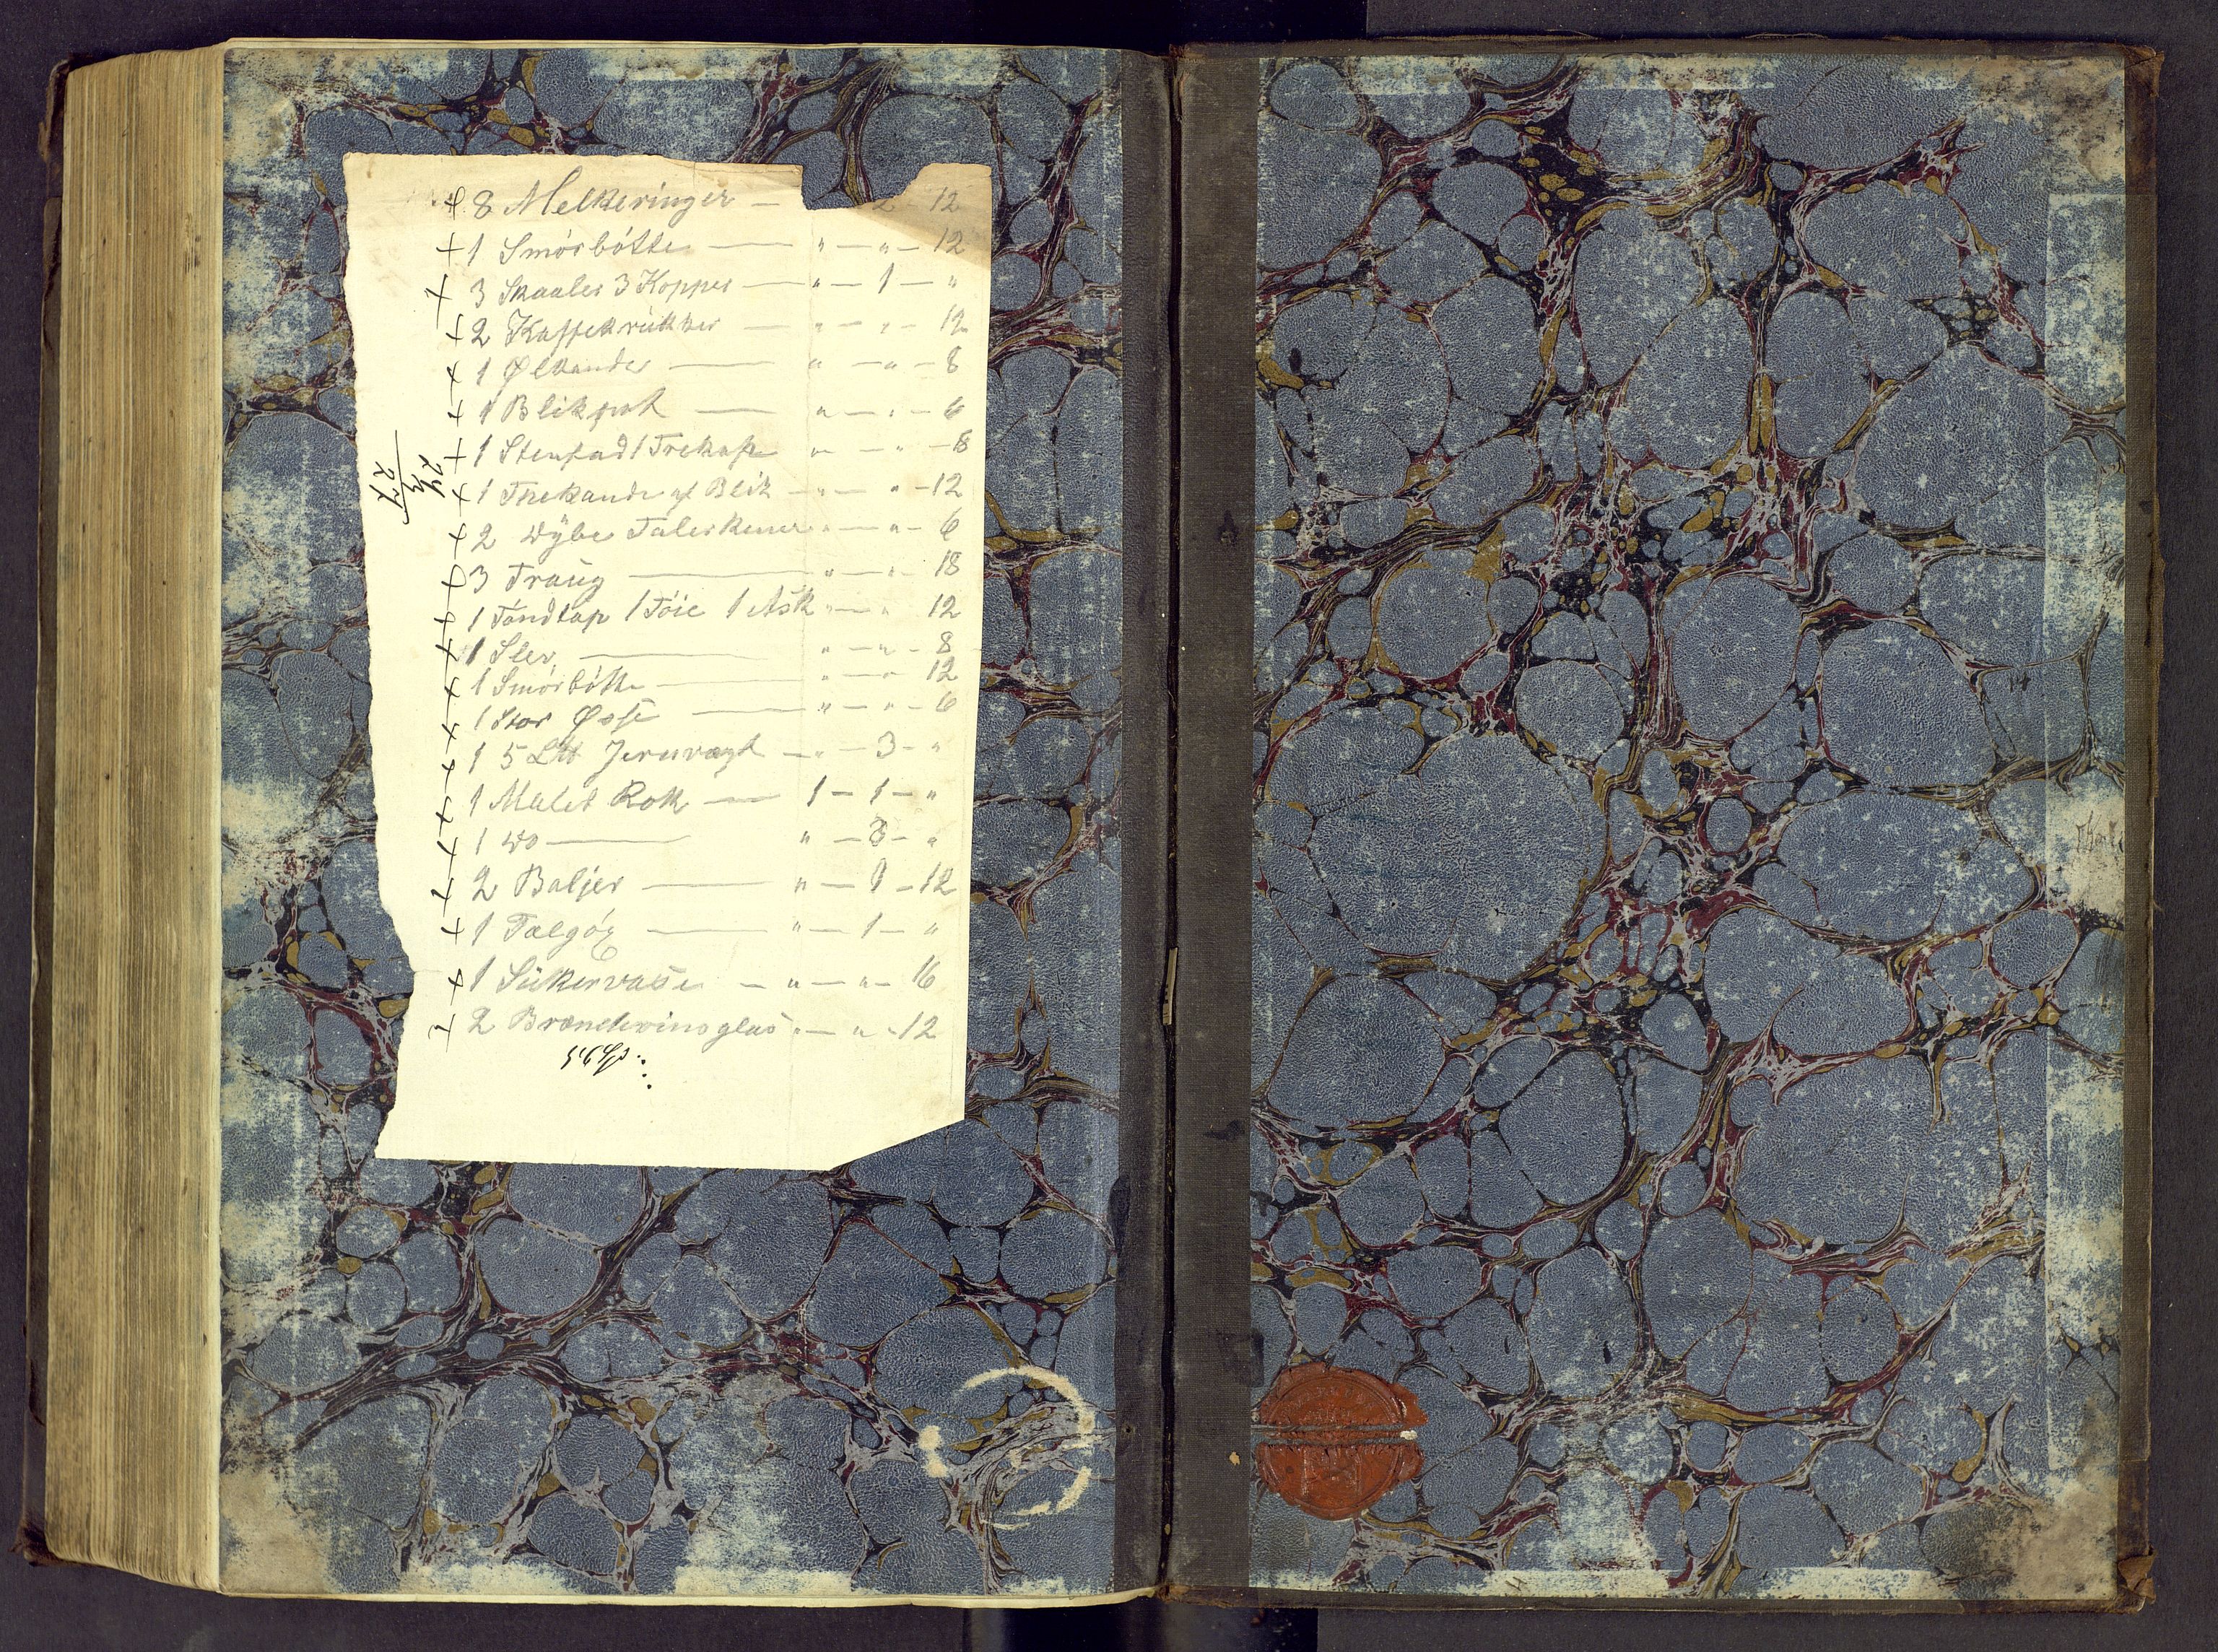 + 8 Melkeringer — 2 - 12
+ 1 Smörbötte — " — " — 12
+ 3 Skaaler 3 Kopper — " — 1 — "
+ 2 Kaffekrukker — " — " — 12
+ 1 Ølkande — " — " — 8
+ 1 Blikpot — " — " — 6
+ 1 Stenfad 1 Trekop — " — " — 8
+ 1 Thekande af Blik — " — " — 12
+ 2 Dÿbe Talerkener " — " — 6
+ 3 Traug — " — " — 18
+ 1 1 Töie 1 Ask " — " 12
+ 1 Slev — " — " — 8
+ 1 Smörbötte — " — " — 12
+ 1 Stor Øse — " — " — 6
+ 1 5 Jernvægt — " — 3 — "
+ 1 Malet Rok — 1 — 1 — "
+ 1 do — " — 3 — "
+ 2 Baljer — " — 1 — 12
+ 1 — " — 1 — "
+ 1 Sukervase — " — " — 16
+ 2 Brændevinsglas " — " — 12
24
3
27